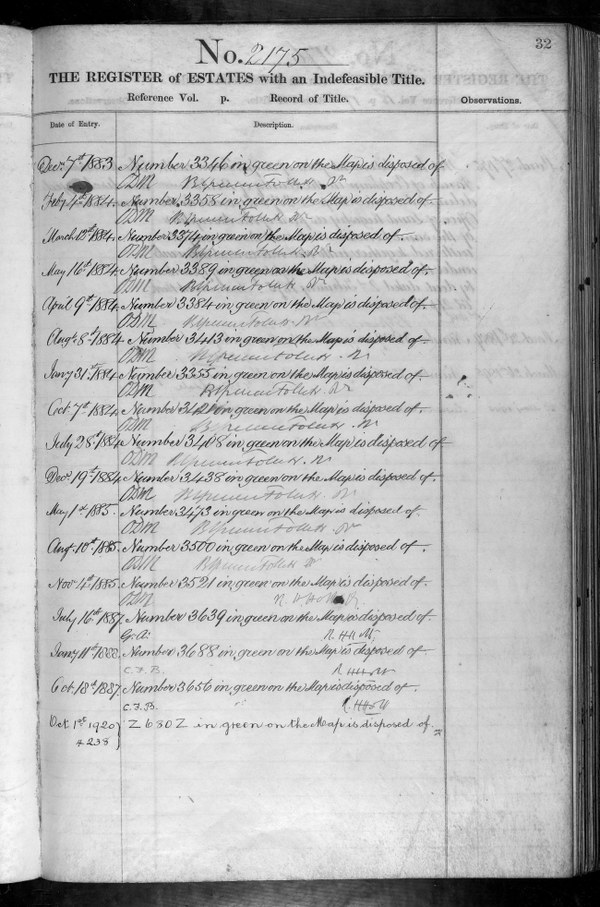 32
No. 2175
THE REGISTER of ESTATES with an Indefeasible Title.
Reference Vol. p. Record of Title.
Observations.
Date of Entry. Description.
Decr 7th 1883 Number 3346 in green on the Map is disposed of.
ODM
Feby 4th 1884. Number 3358 in green on the Map is disposed of.
ODM
March 12th 1884. Number 3374 in green on the Map is disposed of.
ODM
May 16th 1884 Number 3389 in green on the Map is disposed of.
ODM
April 9th 1884 Number 3384 in green on the Map is disposed of.
ODM
Augt 8th 1884 Number 3413 in green on the Map is disposed of.
ODM
Jany 31st 1884 Number 3355 in green on the Map is disposed of.
ODM
Oct 7th 1884. Number in green on the Map is disposed of.
ODM
July 28th 1884. Number 3408 in green on the Map is disposed of.
ODM
Decr 19th 1884 Number 3438 in green on the Map is disposed of.
ODM
May 1st 1885. Number 3473 in green on the Map is disposed of.
ODM
Aug. 10th 1885. Number 3500 in green on the Map is disposed of.
ODM
Nov 4th 1885. Number 3521 in green on the Map is disposed of.
ODM
July 16th 1887. Number 3639 in green on the Map is disposed of.
G. A.
Jany 11th 1888. Number 3688 in green on the Map is disposed of.
C. F. B.
Oct 18th 1887. Number 3656 in green on the Map is disposed of.
C. F. B.
Oct 1st 1920 Z 680 Z in green on the Map is disposed of.
4238